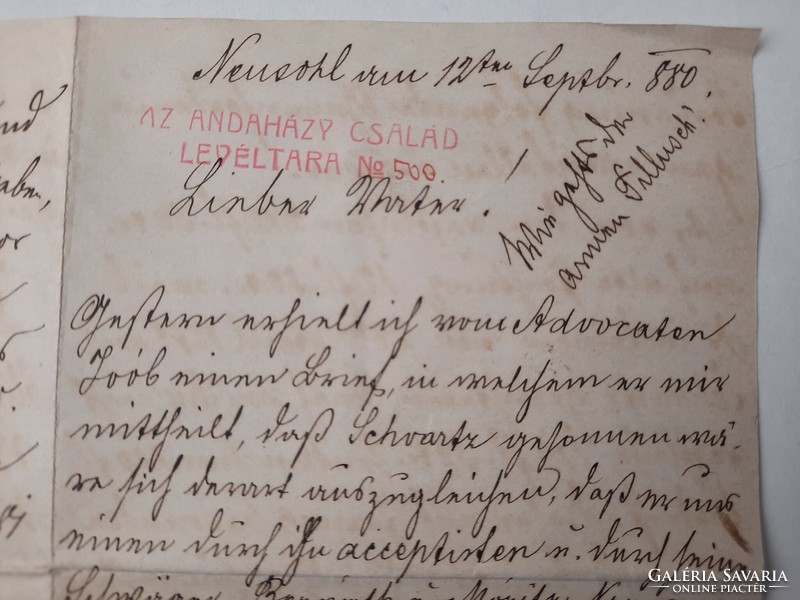 Neusohl am 12ten Septbr. 880.
AZ ANDAHÁZY CSALÁD
LEVÉLTARA № 500.
Lieber Vater!
Wie geht's der
armen
Gestern erhielt ich vom Advocaten
Joób einen Brief, in welchem er mir
mittheilt, daß Schvartz gesonnen wä-
re sich derart auszugleichen, daß er uns
einen durch ihn acceptirten u. durch seine
Schwäger u. Moritz
ind
aben,
or
GALÉRIA SAVARIA
ONLINE PIACTÉR